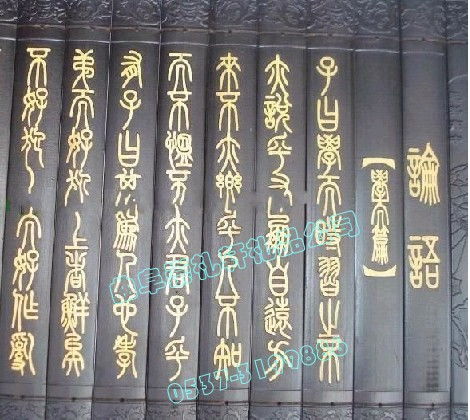 論語
【學而篇】
子曰學而時習之不
亦說乎有朋自遠方
來不亦樂乎人不知
而不慍不亦君子乎
有子曰其為人也孝
弟而好犯上者鮮矣
不好犯上而好作亂
礼品公司